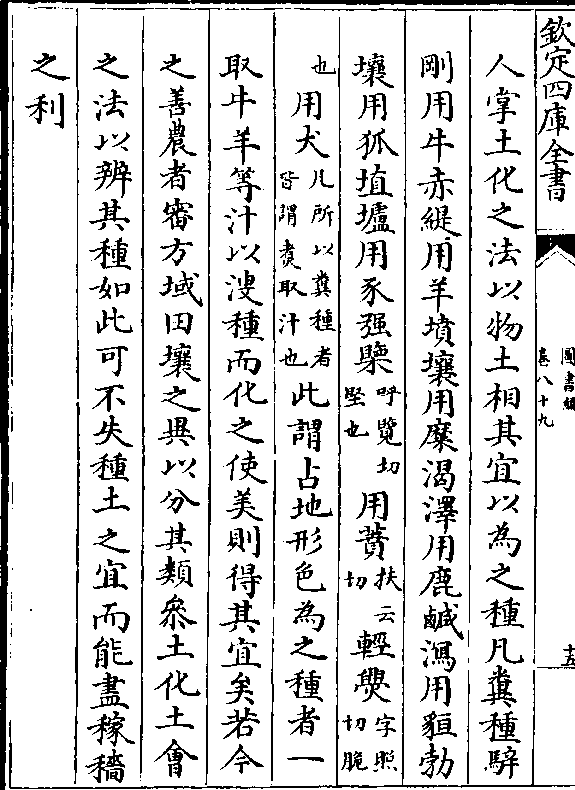 欽定四庫全書
圖書編
卷八十九
十五
人掌土化之法以物土相其宜以為之種凡糞種騂
剛用牛赤緹用羊墳壤用麋渴澤用鹿鹹潟用貆勃
壤用狐埴壚用豕彊㯺呼覽切堅也用蕡扶云切輕㷅字照切脆
也用犬凡所以糞種者皆謂煑取汁也此謂占地形色為之種者一
取牛羊等汁以溲種而化之使美則得其宜矣若今
之善農者審方域田壤之異以分其類叅土化土會
之法以辨其種如此可不失種土之宜而能盡稼穡
之利